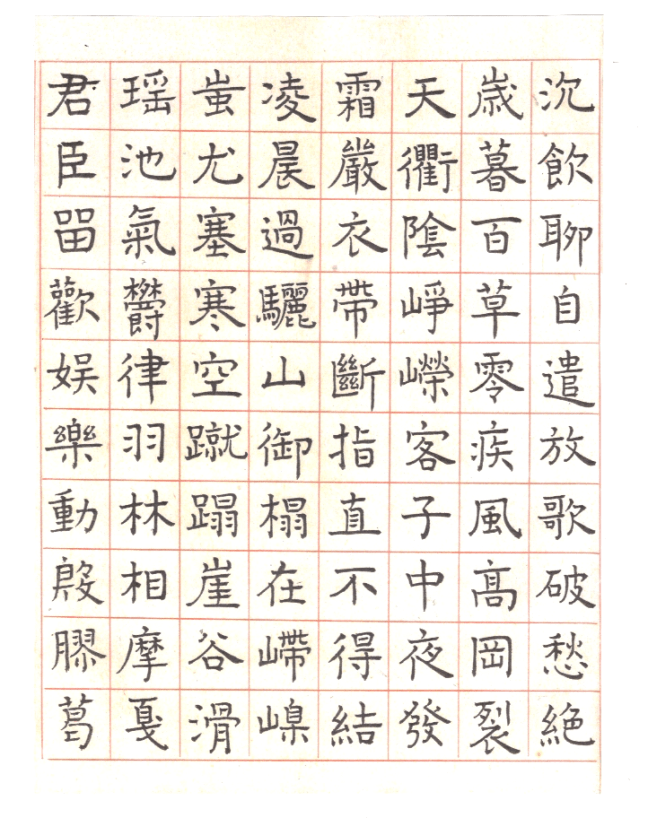 沉飲聊自遣放歌破愁絶
歳暮百草零疾風髙岡裂
天衢陰崢嶸客子中夜發
霜嚴衣帶斷指直不得結
凌晨過驪山御榻在嵽嵲
蚩尤塞寒空蹴蹋崖谷滑
瑶池氣欝律羽林相摩戛
君臣畱歡娱樂動殷膠葛